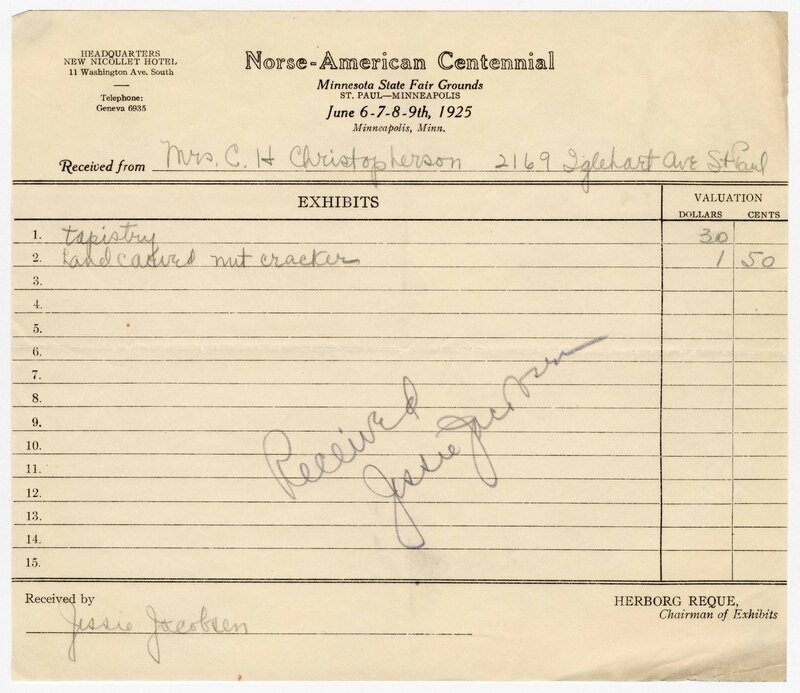 HEADQUARTERS
NEW NICOLLET HOTEL
11 Washington Ave. South
Telephone:
Geneva 6935
Norse-American Centennial
Minnesota State Fair Grounds
ST. PAUL—MINNEAPOLIS
June 6-7-8-9th, 1925
Minneapolis, Minn.
Received from Mrs. C. H Christopherson 2169 Iglehart Ave St Paul
EXHIBITS
VALUATION
DOLLARS CENTS
1. tapistry 30
2. Hand carved nut cracker 1 50
3.
4.
5.
6.
7.
8.
9.
10.
11.
12.
13.
14.
15.
Received
Jessie Jacobsen
Received by
Jessie Jacobsen
HERBORG REQUE,
Chairman of Exhibits